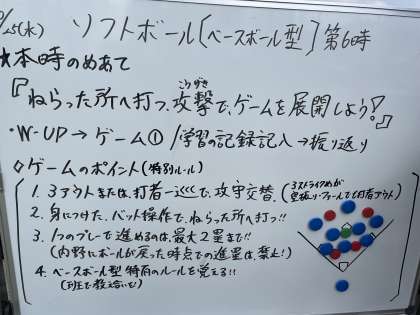 /25(水) ソフトボール〔ベースボール型〕第6時
★本時のめあて
『ねらった所へ打つ攻撃で、ゲームを展開しよう!』
こうげき
・W-UP→ゲーム①/学習の記録記入→振り返り
◇ゲームのポイント(特別ルール)
1. 3アウトまたは、打者一巡で、攻守交替。(3ストライクめが空振り・ファールでも打者アウト)
2. 身につけた、バット操作で、ねらった所へ打つ!!
3. 1つのプレーで進めるのは、最大2塁まで!!
(内野にボールが戻った時点での進塁は、禁止!)
4. ベースボール型特有のルールを覚える!!